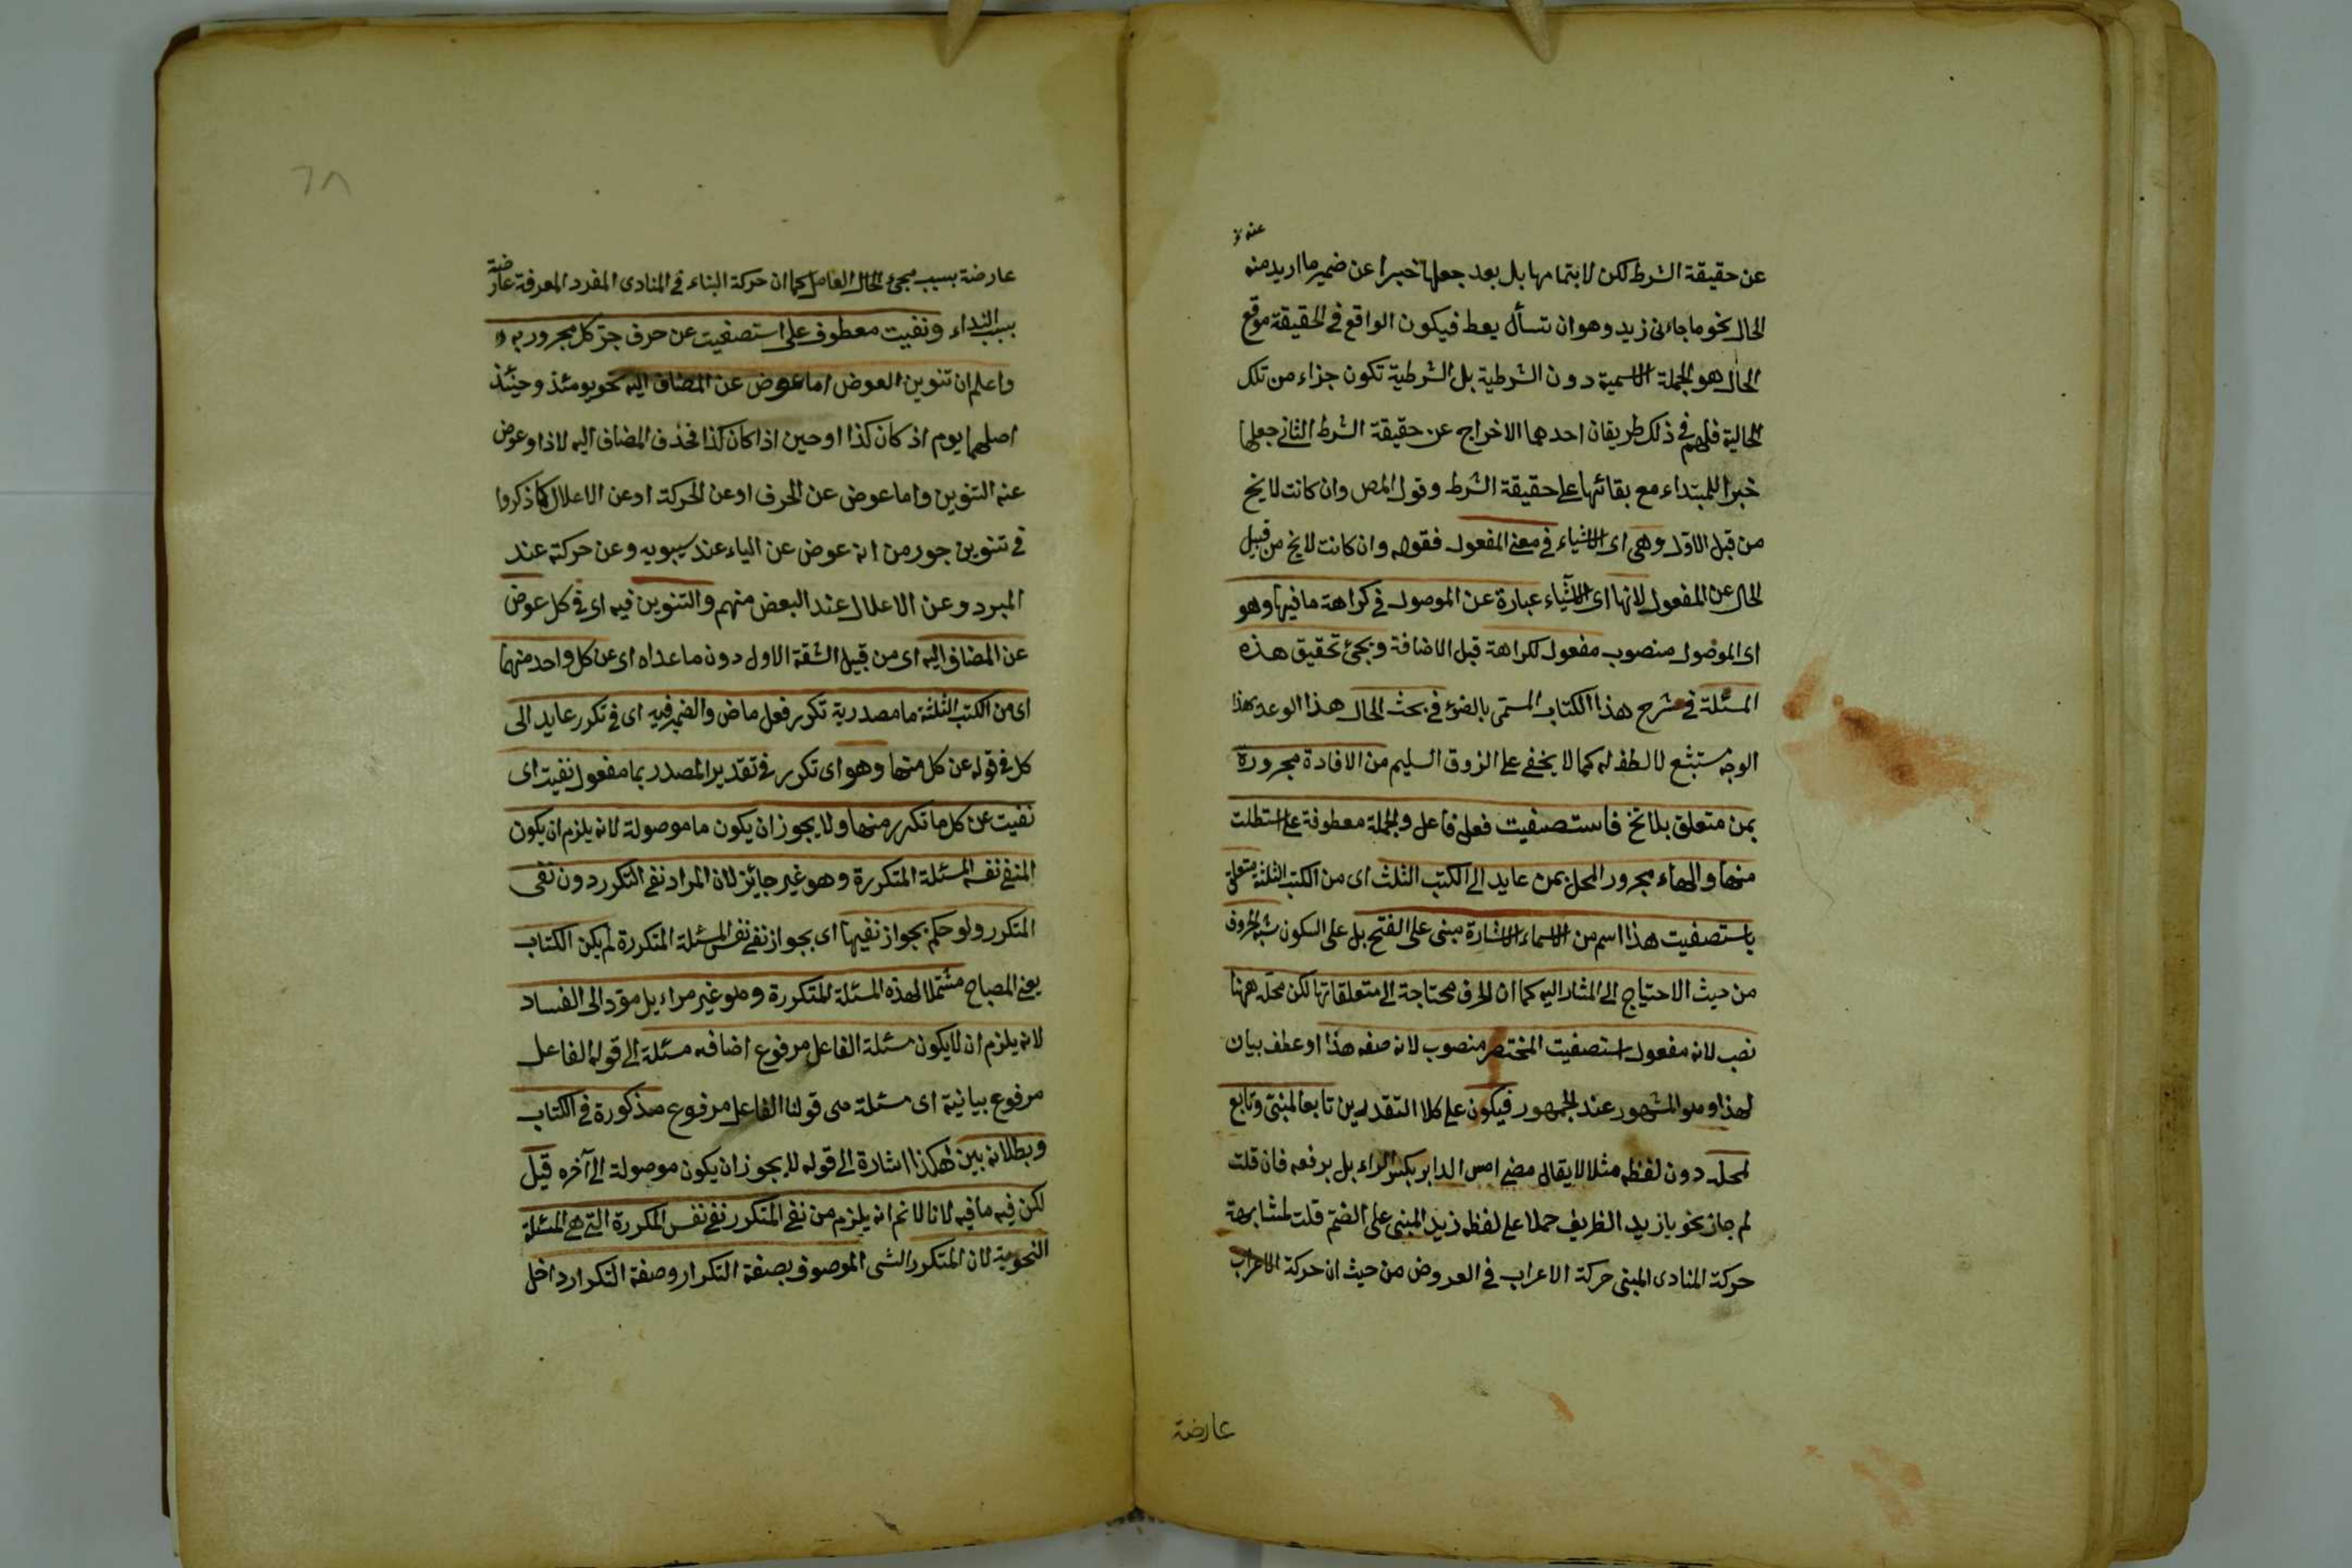 عنه
عن حقيقة الشرط لكن لا بتمامها بل بعد جعلها خبرا عن ضمير ما اريد منه
الحال نحو ما جاءنى زيد وهو ان تسأل يعط فيكون الواقع فى الحقيقة موقع
الحال هو الجملة الاسمية دون الشرطية بل الشرطية تكون جزاء من تلك
الحالية فلهم فى ذلك طريقان احدهما الاخراج عن حقيقة الشرط الثانى جعلها
خبرا للمبتداء مع بقائها على حقيقة الشرط وقول المص وان كانت لا يخ
من قبل الاول وهى اى الاشياء فى معنى المفعول فقوله وان كانت لا يخ من قبيل
الحال عن المفعول لانها اى الاشياء عبارة عن الموصول فى كراهة ما فيها وهو
اى الموصول منصوب مفعول لكراهة قبل الاضافة ويجئ تحقيق هذه
المسئلة فى شرح هذا الكتاب المسمى بالضوء فى بحث الحال هذا الوعد بهذا
الوجه مستبشع لا لطف له كما لا يخفى على الزوق السليم من الافادة مجرورة
بمن متعلق بلا تخ فاستصفيت فعل فاعل والجملة معطوفة على استطلت
منها والهاء مجرور المحل بمن عايد الى الكتب الثلث اى من الكتب الثلثة متعلق
باستصفيت هذا اسم من الاسماء الاشارة مبنى على الفتح بل على السكون شبه الحروف
من حيث الاحتياج الى المشار اليه كما ان الحرف محتاجة الى متعلقاتها لكن محله ههنا
نصب لانه مفعول استصفيت المختصر منصوب لانه صفه هذا او عطف بيان
لهذا وهو المشهور عند الجمهور فيكون على كلا التقديرين تابعا لمبنى وتابع
لمحله دون لفظه مثلا لا يقال مضى امس الدابر بكسر الراء بل برفعه فان قلت
لم جاز نحو يا زيد الظريف حملا على لفظه زيد المبنى على الضم قلت لمشابهة
حركة المنادى المبنى حركة الاعراب فى العروض من حيث ان حركة الاعراب
عارضة
٦٨
عارضة بسبب مجئ الحال العامل كما ان حركة البناء فى المنادى المفرد المعرفة عارضة
بسبب النداء ونفيت معطوف على استصفيت عن حرف جر كل مجرور به
واعلم ان تنوين العوض اما عوض عن المضاف اليه نحو يومئذ وحينئذ
اصلهما يوم اذ كان كذا او حين اذا كان كذا فحذف المضاف اليه لاذ او عوض
عنه التنوين واما عوض عن الحرف او عن الحركة او عن الاعلال كما ذكروا
فى تنوين جور من انه عوض عن الياء عند سيبويه وعن حركة عند
المبرد وعن الاعلال عند البعض منهم والتنوين فيه اى فى كل عوض
عن المضاف اليه اى من قبيل الشقة الاول دون ما عداه اى عن كل واحد منهما
اى من الكتب الثلثة ما مصدرية تكرر فعل ماض والضمير فيه اى فى تكرر عايد الى
كل فى قوله عن كل منها وهو اى تكرر فى تقدير المصدر بما مفعول نفيت اى
نفيت عن كل ما تكرر منها ولا يجوز ان يكون ما موصولة لانه يلزم ان يكون
المنفى نفس المسئلة المتكررة وهو غير جائز لان المراد نفى التكرر دون نفى
المتكرر ولو حكم بجواز نفيها اى بجواز نفى نفس المسئلة المتكررة لم يكن الكتاب
يعنى المصباح مشتملا لهذه المسئلة المتكررة وهو غير مراد بل مؤد الى الفساد
لانه يلزم ان لا يكون مسئلة الفاعل مرفوع اضافه مسئلة الى قوله الفاعل
مرفوع بيانية اى مسئلة هى قولنا الفاعل مرفوع مذكورة فى الكتاب
وبطلانه بين هكذا اشارة الى قوله لا يجوز ان يكون موصولة الى آخره قيل
لكن فيه ما فيه لانا لا نم انه يلزم من نفى المتكرر نفى نفس المكررة التى هى المسئلة
النحوية لان المتكرر الشى الموصوف بصفة التكرار وصفة التكرار داخل